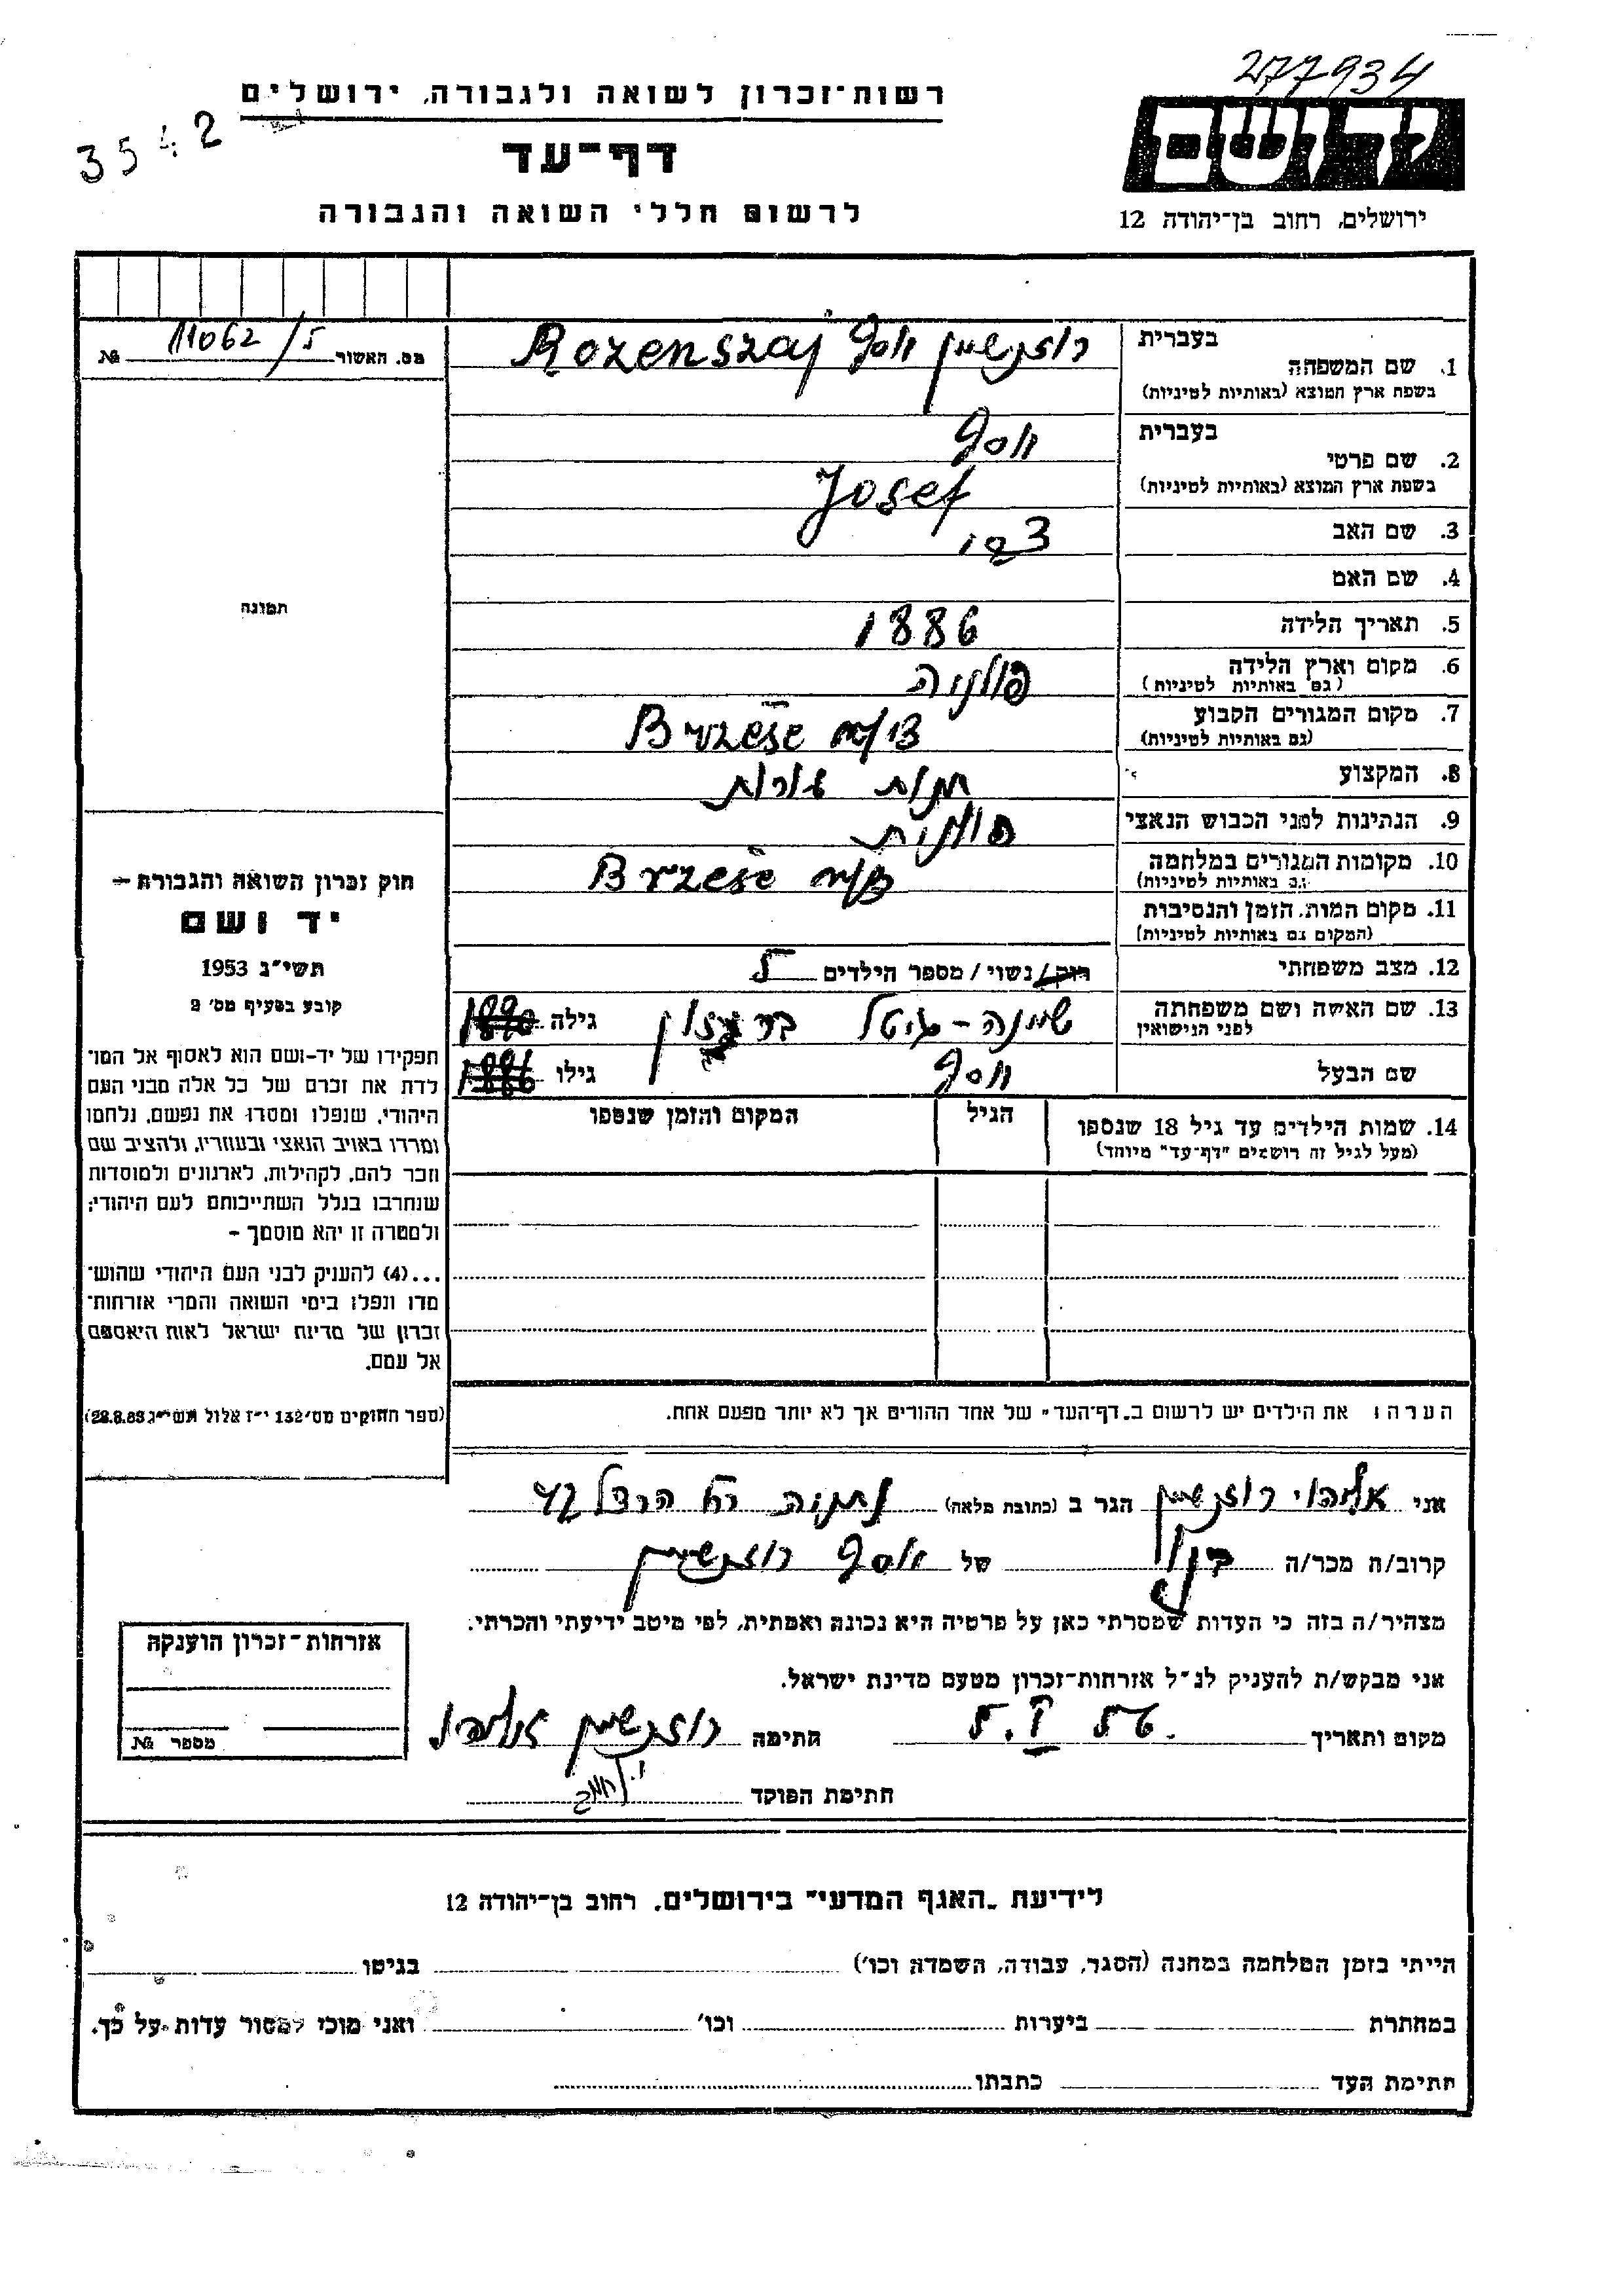 277934
רשות־זכרון לשואה ולגבורה, ירושלים
3542
דף־עד
ידושם
לרשום חללי השואה והגבורה
ירושלים, רחוב בן־יהודה 12
מס. האשור 11062/5 №
בעברית
1. שם המשפחה
רוזנשיין יוסף Rozenszajn
בשפת ארץ המוצא (באותיות לטיניות)
בעברית
יוסף
2. שם פרטי
בשפת ארץ המוצא (באותיות לטיניות)
Josef
3. שם האב צבי
4. שם האם
תמונה
5. תאריך הלידה 1886
6. מקום וארץ הלידה פולניה
(גם באותיות לטיניות)
7. מקום המגורים הקבוע
(גם באותיות לטיניות)
8. המקצוע חנות עורות
9. הנתינות לפני הכבוש הנאצי פולנית
10. מקומות המגורים במלחמה
(גם באותיות לטיניות)
11. מקום המות, הזמן והנסיבות
(המקום גם באותיות לטיניות)
12. מצב משפחתי רווק / נשוי / מספר הילדים 5
13. שם האשה ושם משפחתה
לפני הנישואין
גילה 1890
שם הבעל יוסף גילו 1886
14. שמות הילדים עד גיל 18 שנספו הגיל המקום והזמן שנספו
(מעל לגיל זה רושמים "דף־עד" מיוחד)
חוק זכרון השואה והגבורה –
יד ושם
תשי"ג 1953
קובע בסעיף מס' 2
תפקידו של יד-ושם הוא לאסוף אל המו־
לדת את זכרם של כל אלה מבני העם
היהודי, שנפלו ומסרו את נפשם, נלחמו
ומרדו באויב הנאצי ובעוזריו, ולהציב שם
וזכר להם, לקהילות, לארגונים ולמוסדות
שנחרבו בגלל השתייכותם לעם היהודי;
ולמטרה זו יהא מוסמך –
...(4) להעניק לבני העם היהודי שהוש־
מדו ונפלו בימי השואה והמרי אזרחות־
זכרון של מדינת ישראל לאות היאספם
אל עמם.
(ספר החוקים מס' 132 י"ז אלול תשי"ג 28.8.53)
הערה: את הילדים יש לרשום ב„דף־העד" של אחד ההורים אך לא יותר מפעם אחת.
אני אליהו רוזנשיין הגר ב (כתובת מלאה) נתניה רח הרצל 42
קרוב/ה מכר/ה בנו של יוסף רוזנשיין
מצהיר/ה בזה כי העדות שמסרתי כאן על פרטיה היא נכונה ואמתית, לפי מיטב ידיעתי והכרתי.
אני מבקש/ת להעניק לנ"ל אזרחות־זכרון מטעם מדינת ישראל.
מקום ותאריך חתימה רוזנשיין אליהו
חתימת הפוקד
אזרחות־זכרון הוענקה
מספר №
לידיעת „האגף המדעי" בירושלים, רחוב בן־יהודה 12
הייתי בזמן המלחמה במחנה (הסגר, עבודה, השמדה וכו') בגיטו
במחתרת ביערות וכו' ואני מוכן למסור עדות על כך.
חתימת העד כתבתו